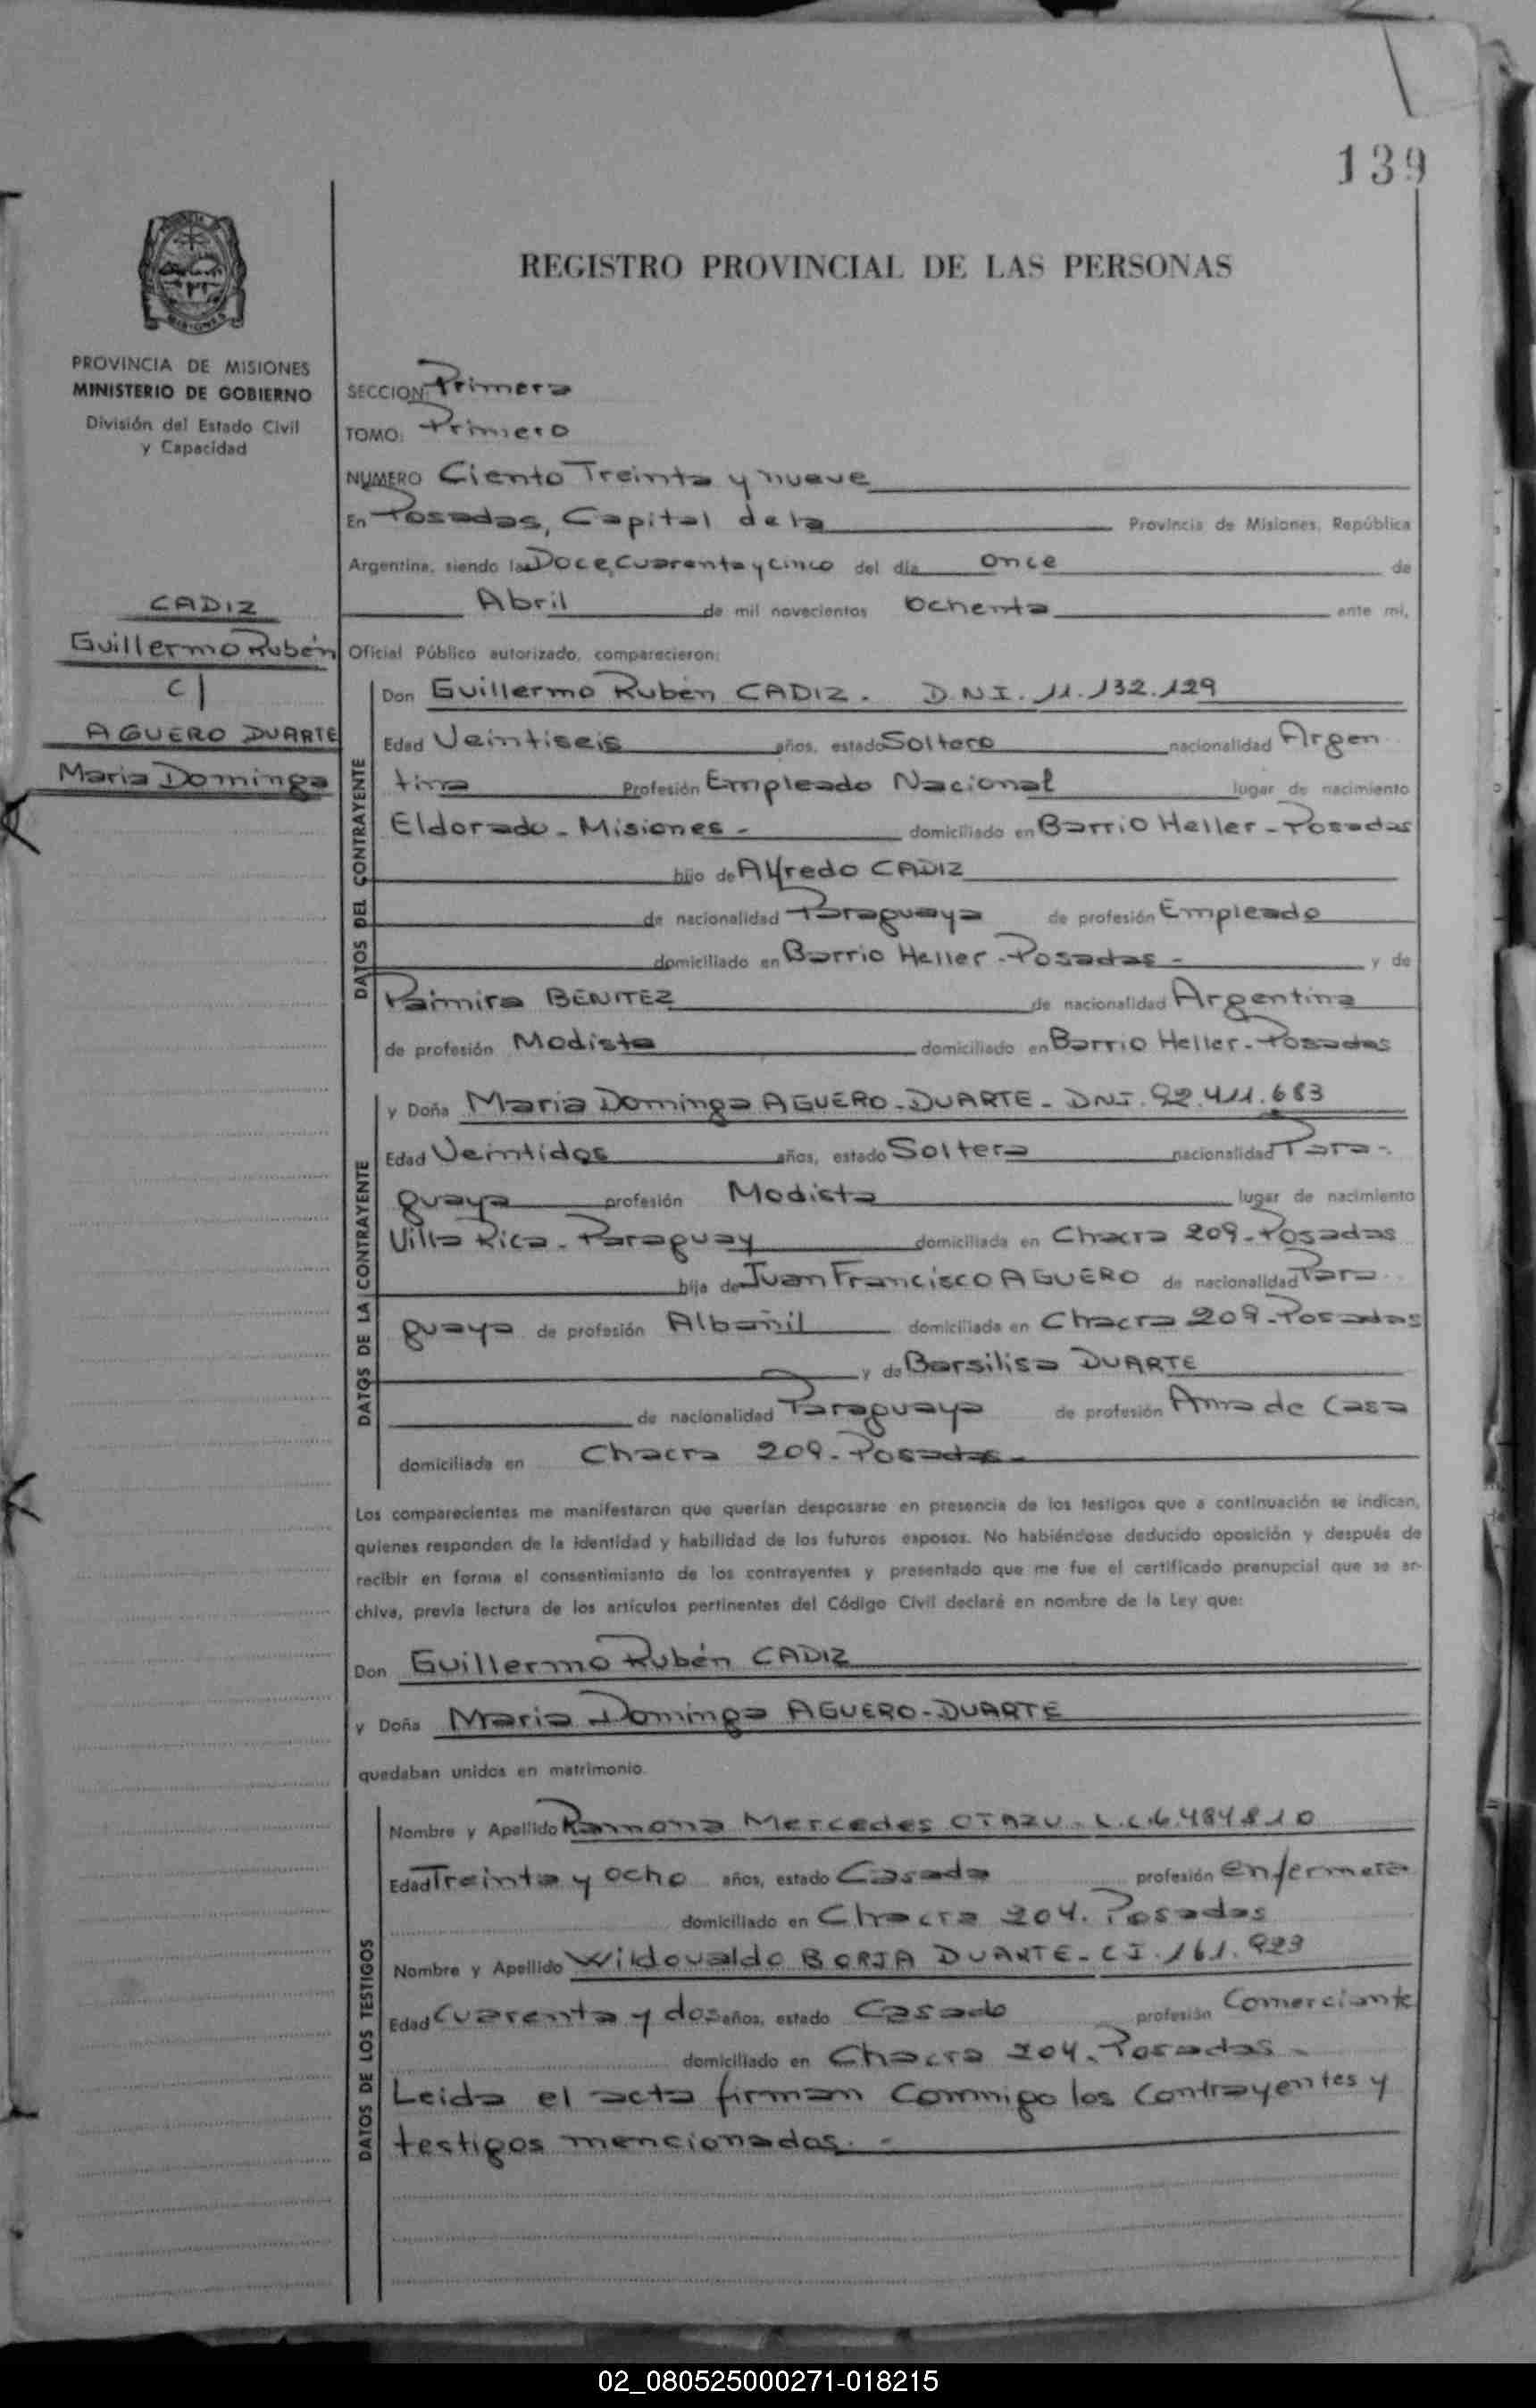 139
REGISTRO PROVINCIAL DE LAS PERSONAS
MISIONES
PROVINCIA DE MISIONES
MINISTERIO DE GOBIERNO
División del Estado Civil
y Capacidad
CADIZ
Guillermo Rubén
c/
AGUERO DUARTE
Maria Dominga
SECCION: Primera
TOMO: Primero
NUMERO Ciento Treinta y nueve
En Posadas, Capital de la Provincia de Misiones, República
Argentina, siendo las Doce, cuarenta y cinco del día once de
Abril de mil novecientos Ochenta ante mi,
Oficial Público autorizado, comparecieron:
DATOS DEL CONTRAYENTE
Don Guillermo Rubén CADIZ. D.N.I. 11.132.129
Edad Veintiseis años, estado Soltero nacionalidad Argen
tina Profesión Empleado Nacional lugar de nacimiento
Eldorado - Misiones - domiciliado en Barrio Heller - Posadas
hijo de Alfredo CADIZ
de nacionalidad Paraguaya de profesión Empleado
domiciliado en Barrio Heller - Posadas - y de
Palmira BENITEZ de nacionalidad Argentina
de profesión Modista domiciliado en Barrio Heller - Posadas
DATOS DE LA CONTRAYENTE
y Doña Maria Dominga AGUERO - DUARTE - DNI. 92.411.683
Edad Veintidos años, estado Soltera nacionalidad Para-
guaya profesión Modista lugar de nacimiento
Villa Rica - Paraguay domiciliada en Chacra 209 - Posadas
hija de Juan Francisco AGUERO de nacionalidad Para
guaya de profesión Albañil domiciliada en Chacra 209 - Posadas
y de Barsilisa DUARTE
de nacionalidad Paraguaya de profesión Ama de Casa
domiciliada en Chacra 209 - Posadas -
Los comparecientes me manifestaron que querían desposarse en presencia de los testigos que a continuación se indican,
quienes responden de la identidad y habilidad de los futuros esposos. No habiéndose deducido oposición y después de
recibir en forma el consentimiento de los contrayentes y presentado que me fue el certificado prenupcial que se ar-
chiva, previa lectura de los artículos pertinentes del Código Civil declaré en nombre de la Ley que:
Don Guillermo Rubén CADIZ
y Doña Maria Dominga AGUERO - DUARTE
quedaban unidos en matrimonio.
DATOS DE LOS TESTIGOS
Nombre y Apellido Ramona Mercedes OTAZU - L.C. 6.484.810
Edad Treinta y ocho años, estado Casada profesión enfermera
domiciliado en Chacra 204. Posadas
Nombre y Apellido Wildovaldo BORJA DUARTE - C.I. 161.923
Edad Cuarenta y dos años, estado Casado profesión Comerciante
domiciliado en Chacra 204. Posadas -
Leida el acta firman conmigo los contrayentes y
testigos mencionados. -
02_080525000271-018215